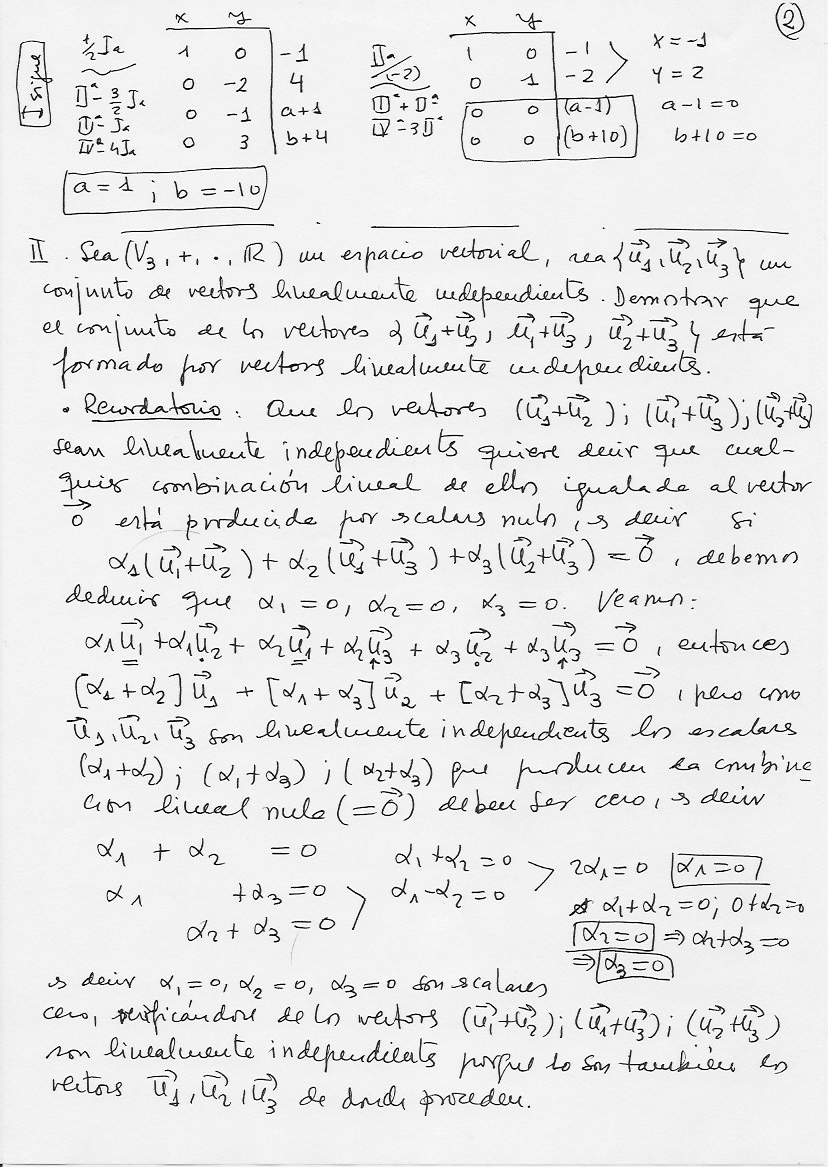 ②
I sigue
x y
½ Iª 1 0 | -1
IIª - 3/2 Iª 0 -2 | 4
IIIª - Iª 0 -1 | a+1
IVª - 4Iª 0 3 | b+4
x y
IIª/(-2) 1 0 | -1
0 1 | -2
IIIª + IIª 0 0 | (a-1)
IV - 3IIª 0 0 | (b+10)
x = -1
y = 2
a-1=0
b+10=0
a = 1 ; b = -10
II. Sea (V₃, +, ·, ℝ) un espacio vectorial, sea {u⃗₁, u⃗₂, u⃗₃} un
conjunto de vectors linealmente independients. Demostrar que
el conjunto de los vectores {u⃗₁+u⃗₂, u⃗₁+u⃗₃, u⃗₂+u⃗₃} está
formado por vectors linealmente independients.
• Recordatorio: Que los vectores (u⃗₁+u⃗₂); (u⃗₁+u⃗₃); (u⃗₂+u⃗₃)
sean linealmente independients quiere decir que cual-
quier combinación lineal de ellos igualada al vector
0⃗ está producida por scalars nulos, s decir si
α₁(u⃗₁+u⃗₂) + α₂(u⃗₁+u⃗₃) + α₃(u⃗₂+u⃗₃) = 0⃗, debemos
deducir que α₁=0, α₂=0, α₃=0. Veamos:
α₁u⃗₁ + α₁u⃗₂ + α₂u⃗₁ + α₂u⃗₃ + α₃u⃗₂ + α₃u⃗₃ = 0⃗, entonces
[α₁+α₂]u⃗₁ + [α₁+α₃]u⃗₂ + [α₂+α₃]u⃗₃ = 0⃗, pero como
u⃗₁, u⃗₂, u⃗₃ son linealmente independients los escalars
(α₁+α₂); (α₁+α₃); (α₂+α₃) que producen la combina
cion lineal nula (=0⃗) deben ser cero, s decir
α₁ + α₂ = 0
α₁ + α₃ = 0
α₂ + α₃ = 0
α₁+α₂=0
α₁-α₂=0
2α₁=0 α₁=0
α₁+α₂=0; 0+α₂=0
α₂=0 ⇒ α₂+α₃=0
⇒ α₃=0
s decir α₁=0, α₂=0, α₃=0 son scalares
cero, verificándose de los vectors (u⃗₁+u⃗₂); (u⃗₁+u⃗₃); (u⃗₂+u⃗₃)
son linealmente independients porque lo son también los
vectors u⃗₁, u⃗₂, u⃗₃ de donde proceden.